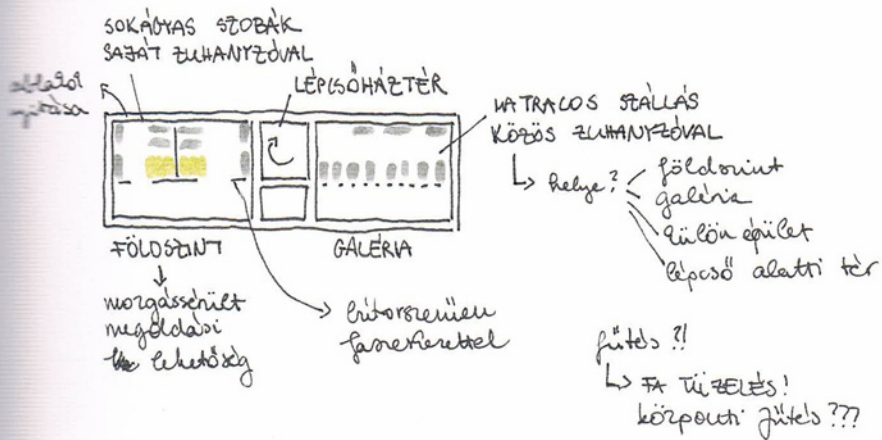 SOKÁGYAS SZOBÁK
SAJÁT ZUHANYZÓVAL
ablakok
nyitása
LÉPCSŐHÁZTÉR
MATRACOS SZÁLLÁS
KÖZÖS ZUHANYZÓVAL
helye?
földszint
galéria
külön épület
lépcső alatti tér
FÖLDSZINT
GALÉRIA
mozgássérült
megoldási
lehetőség
bútorszerűen
faszerkezettel
fűtés ?!
FA TÜZELÉS!
központi fűtés ???